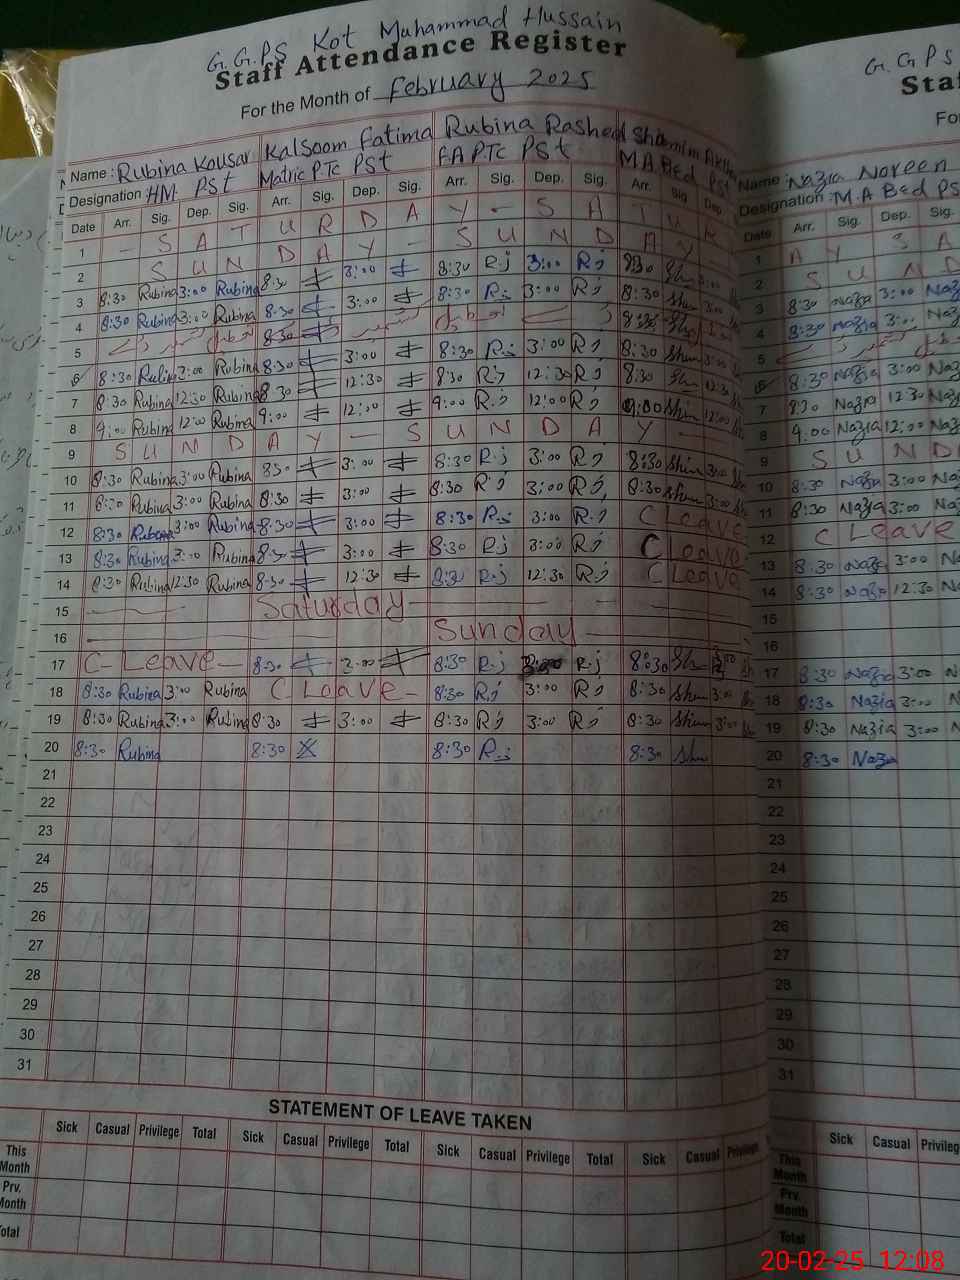 G.G.PS Kot Muhammad Hussain
Staff Attendance Register
For the Month of February 2025
Name: Rubina Kousar Kalsoom Fatima Rubina Rasheed
Designation: HM PSt Matric PTc PSt FA PTC PSt M.A Bed PSt
Date Arr. Sig. Dep. Sig. Arr. Sig. Dep. Sig. Arr. Sig. Dep. Sig. Arr. Sig. Dep.
1 - S A T U R D A Y - S A T U R
2 S U N D A Y - S U N D A Y
3 8:30 Rubina 3:00 Rubina 8:30 3:00 8:30 R.j 3:00 R.j 8:30 Shm 3:00
4 8:30 Rubina 3:00 Rubina 8:30 3:00 8:30 R.j 3:00 R.j 8:30 Shm 3:00
5
6 8:30 Rubina 3:00 Rubina 8:30 3:00 8:30 R.j 3:00 R.j 8:30 Shm 3:00
7 8:30 Rubina 12:30 Rubina 8:30 12:30 8:30 R.j 12:30 R.j 8:30 Shm 12:30
8 9:00 Rubina 12:00 Rubina 9:00 12:00 9:00 R.j 12:00 R.j 9:00 Shm 12:00
9 S U N D A Y - S U N D A Y
10 8:30 Rubina 3:00 Rubina 8:30 3:00 8:30 R.j 3:00 R.j 8:30 Shm 3:00
11 8:30 Rubina 3:00 Rubina 8:30 3:00 8:30 R.j 3:00 R.j 8:30 Shm 3:00
12 8:30 Rubina 3:00 Rubina 8:30 3:00 8:30 R.j 3:00 R.j C Leave
13 8:30 Rubina 3:00 Rubina 8:30 3:00 8:30 R.j 3:00 R.j C Leave
14 8:30 Rubina 12:30 Rubina 8:30 12:30 8:30 R.j 12:30 R.j C Leave
15 Saturday
16 Sunday
17 C- Leave - 8:30 3:00 8:30 R.j R.j 8:30 Shm
18 8:30 Rubina 3:00 Rubina C Leave - 8:30 R.j 3:00 R.j 8:30 Shm 3:00
19 8:30 Rubina 3:00 Rubina 8:30 3:00 8:30 R.j 3:00 R.j 8:30 Shm 3:00
20 8:30 Rubina 8:30 8:30 R.j 8:30 Shm
21
22
23
24
25
26
27
28
29
30
31
STATEMENT OF LEAVE TAKEN
Sick Casual Privilege Total Sick Casual Privilege Total Sick Casual Privilege Total Sick Casual Privilege
This Month
Prv. Month
Total
G.G.PS
Name: Nazia Noreen
Designation: M.A Bed PS
Date Arr. Sig. Dep. Sig.
1 A Y S A
2 S U N D
3 8:30 Nazia 3:00 Naz
4 8:30 Nazia 3:00 Naz
5
6 8:30 Nazia 3:00 Naz
7 8:30 Nazia 12:30 Naz
8 9:00 Nazia 12:00 Naz
9 S U N D
10 8:30 Nazia 3:00 Na
11 8:30 Nazia 3:00 Na
12 C Leave
13 8:30 Nazia 3:00 Na
14 8:30 Nazia 12:30 N
15
16
17 8:30 Nazia 3:00 N
18 8:30 Nazia 3:00 N
19 8:30 Nazia 3:00 N
20 8:30 Nazia
21
22
23
24
25
26
27
28
29
30
31
Sick Casual
This Month
Prv. Month
Total
20-02-25 12:08